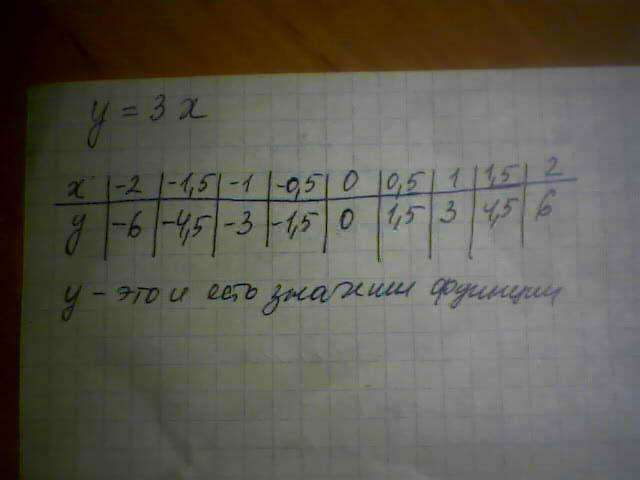 y = 3x
x -2 -1,5 -1 -0,5 0 0,5 1 1,5 2
y -6 -4,5 -3 -1,5 0 1,5 3 4,5 6
y - это и есть значении функции